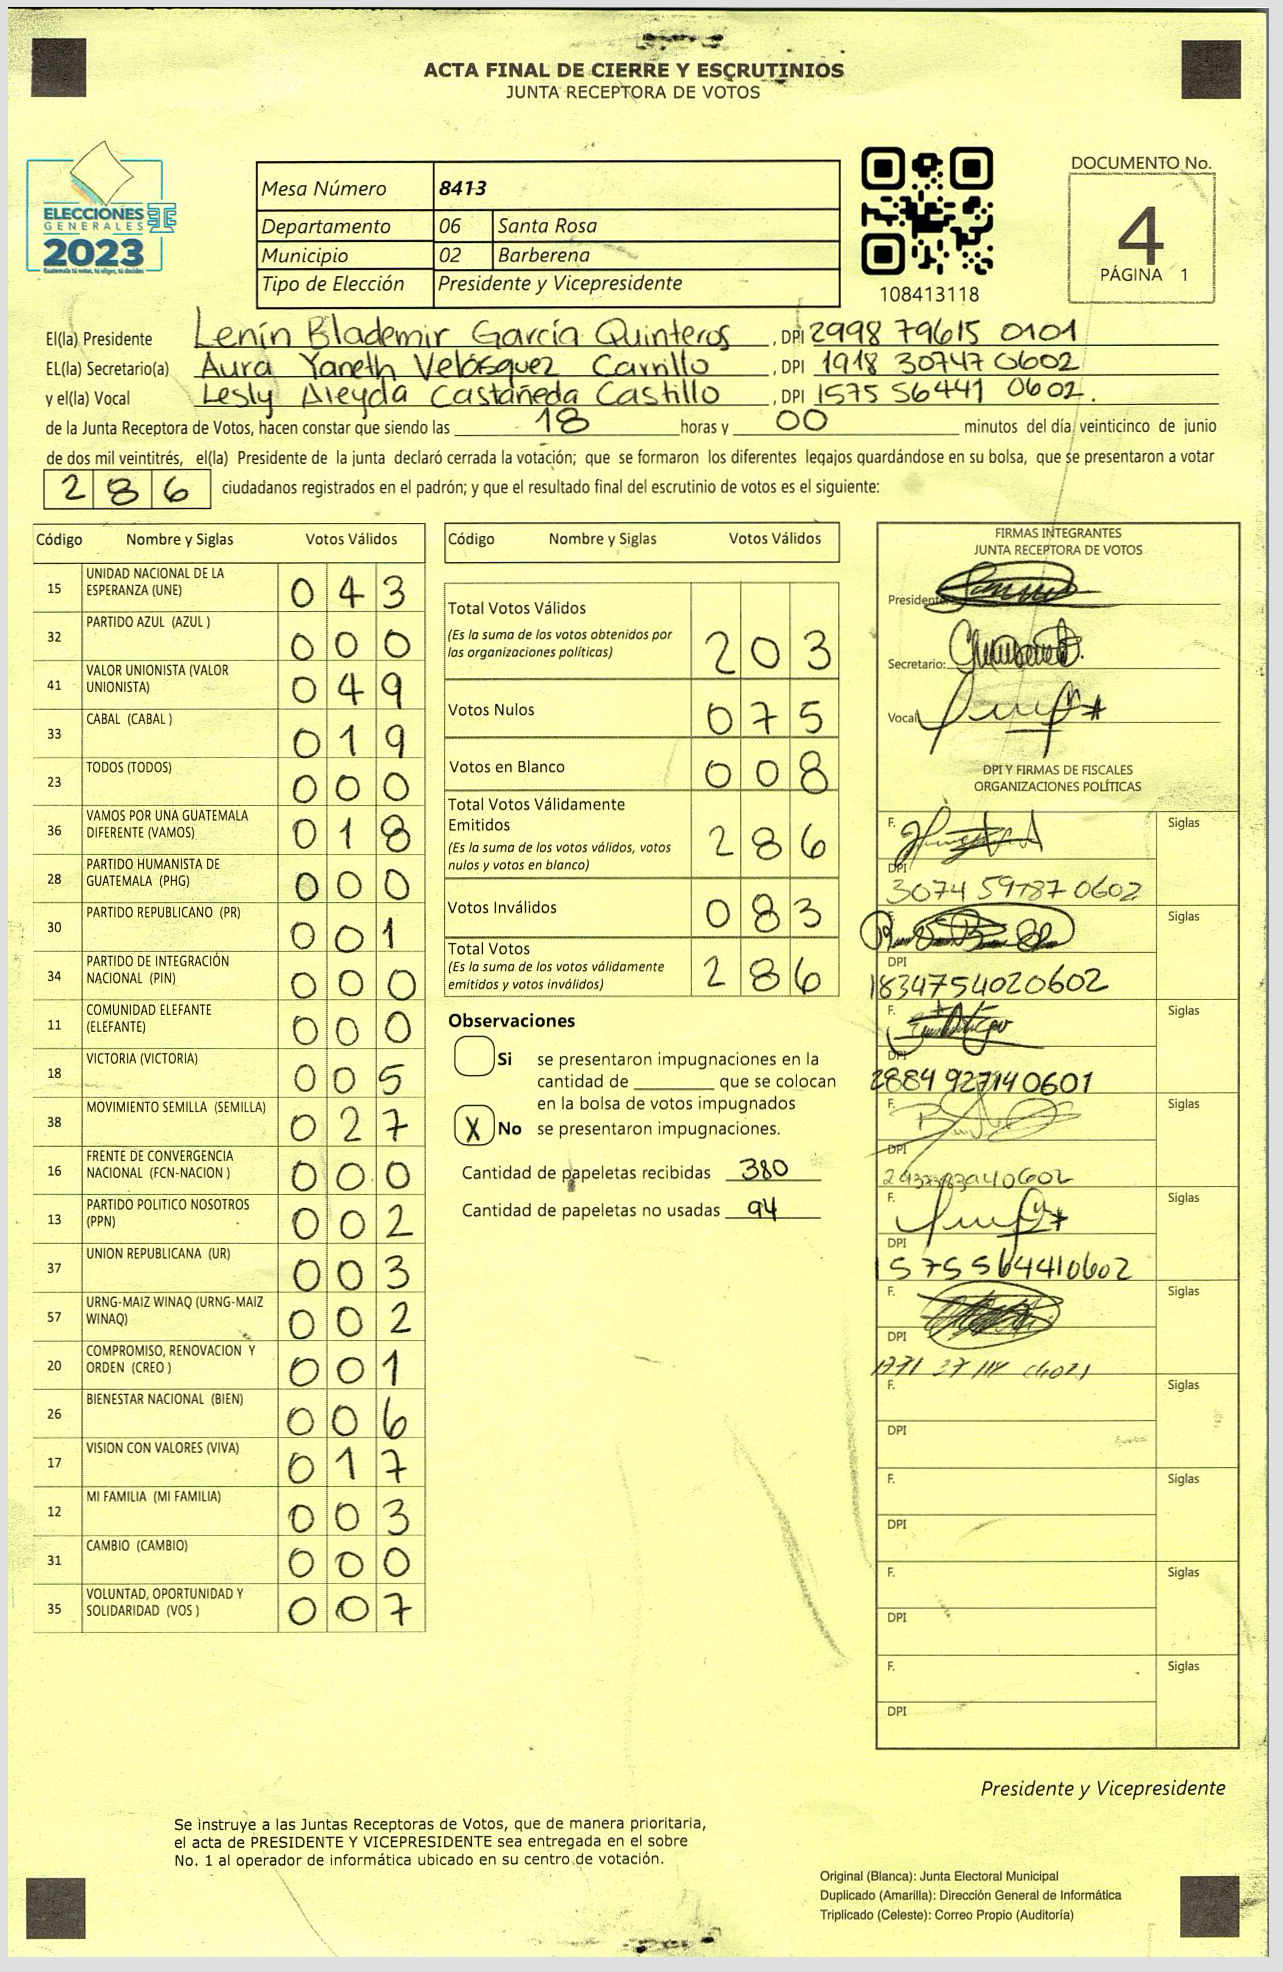 ACTA FINAL DE CIERRE Y ESCRUTINIOS
JUNTA RECEPTORA DE VOTOS
ELECCIONES
GENERALES
2023
Guatemala tú votas, tú eliges, tú decides
Mesa Número 8413
Departamento 06 Santa Rosa
Municipio 02 Barberena
Tipo de Elección Presidente y Vicepresidente
108413118
DOCUMENTO No.
4
PÁGINA 1
El(la) Presidente Lenín Blademir García Quinteros, DPI 2998 79615 0101
EL(la) Secretario(a) Aura Yaneth Velásquez Carrillo, DPI 1918 30747 0602
y el(la) Vocal Lesly Aleyda Castañeda Castillo, DPI 1575 56441 0602.
de la Junta Receptora de Votos, hacen constar que siendo las 18 horas y 00 minutos del día veinticinco de junio
de dos mil veintitrés, el(la) Presidente de la junta declaró cerrada la votación; que se formaron los diferentes legajos guardándose en su bolsa, que se presentaron a votar
286 ciudadanos registrados en el padrón; y que el resultado final del escrutinio de votos es el siguiente:
Código Nombre y Siglas Votos Válidos
15 UNIDAD NACIONAL DE LA ESPERANZA (UNE) 043
32 PARTIDO AZUL (AZUL ) 000
41 VALOR UNIONISTA (VALOR UNIONISTA) 049
33 CABAL (CABAL ) 019
23 TODOS (TODOS) 000
36 VAMOS POR UNA GUATEMALA DIFERENTE (VAMOS) 018
28 PARTIDO HUMANISTA DE GUATEMALA (PHG) 000
30 PARTIDO REPUBLICANO (PR) 001
34 PARTIDO DE INTEGRACIÓN NACIONAL (PIN) 000
11 COMUNIDAD ELEFANTE (ELEFANTE) 000
18 VICTORIA (VICTORIA) 005
38 MOVIMIENTO SEMILLA (SEMILLA) 027
16 FRENTE DE CONVERGENCIA NACIONAL (FCN-NACION ) 000
13 PARTIDO POLITICO NOSOTROS (PPN) 002
37 UNION REPUBLICANA (UR) 003
57 URNG-MAIZ WINAQ (URNG-MAIZ WINAQ) 002
20 COMPROMISO, RENOVACION Y ORDEN (CREO ) 001
26 BIENESTAR NACIONAL (BIEN) 006
17 VISION CON VALORES (VIVA) 017
12 MI FAMILIA (MI FAMILIA) 003
31 CAMBIO (CAMBIO) 000
35 VOLUNTAD, OPORTUNIDAD Y SOLIDARIDAD (VOS ) 007
Código Nombre y Siglas Votos Válidos
Total Votos Válidos
(Es la suma de los votos obtenidos por las organizaciones políticas) 203
Votos Nulos 075
Votos en Blanco 008
Total Votos Válidamente Emitidos
(Es la suma de los votos válidos, votos nulos y votos en blanco) 286
Votos Inválidos 083
Total Votos
(Es la suma de los votos válidamente emitidos y votos inválidos) 286
Observaciones
Si se presentaron impugnaciones en la
cantidad de ________ que se colocan
en la bolsa de votos impugnados
X No se presentaron impugnaciones.
Cantidad de papeletas recibidas 380
Cantidad de papeletas no usadas 94
FIRMAS INTEGRANTES
JUNTA RECEPTORA DE VOTOS
Presidente:
Secretario:
Vocal
DPI Y FIRMAS DE FISCALES
ORGANIZACIONES POLÍTICAS
F. Siglas
DPI
3074 59787 0602
F. Siglas
DPI
1834754020602
F. Siglas
DPI
2884 927140601
F. Siglas
DPI
F. Siglas
DPI
1575564410602
F. Siglas
DPI
F. Siglas
DPI
F. Siglas
DPI
F. Siglas
DPI
F. Siglas
DPI
Presidente y Vicepresidente
Se instruye a las Juntas Receptoras de Votos, que de manera prioritaria,
el acta de PRESIDENTE Y VICEPRESIDENTE sea entregada en el sobre
No. 1 al operador de informática ubicado en su centro de votación.
Original (Blanca): Junta Electoral Municipal
Duplicado (Amarilla): Dirección General de Informática
Triplicado (Celeste): Correo Propio (Auditoría)